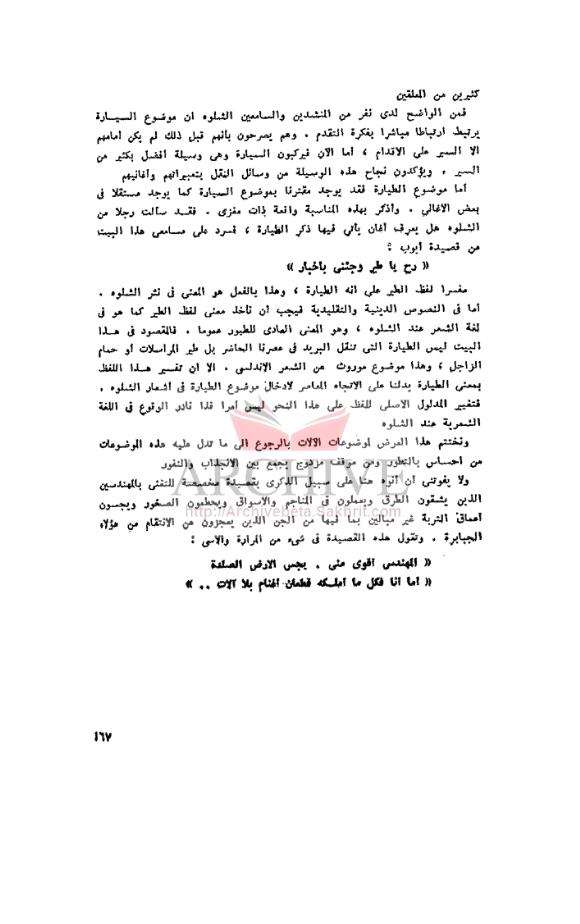 كثيرين من المعلقين
فمن الواضح لدى نفر من المنشدين والسامعين الشلوه ان موضوع السيارة
يرتبط ارتباطا مباشرا بفكرة التقدم . وهم يصرحون بأنهم قبل ذلك لم يكن أمامهم
الا السير على الاقدام ، أما الآن فيركبون السيارة وهى وسيلة أفضل بكثير من
السير . ويؤكدون نجاح هذه الوسيلة من وسائل النقل بتعبيراتهم وأغانيهم
أما موضوع الطيارة فقد يوجد مقترنا بموضوع السيارة كما يوجد مستقلا فى
بعض الاغانى . وأذكر بهذه المناسبة واقعة ذات مغزى . فقد سألت رجلا من
الشلوه هل يعرف أغان يأتى فيها ذكر الطيارة ، فسرد على مسامعى هذا البيت
من قصيدة أيوب :
« رح يا طير وجئنى بأخبار »
مفسرا لفظ الطير على انه الطيارة ، وهذا بالفعل هو المعنى فى نثر الشلوه .
أما فى النصوص الدينية والتقليدية فيجب أن تأخذ معنى لفظ الطير كما هو فى
لغة الشعر عند الشلوه ، وهو المعنى العادى للطيور عموما . فالمقصود فى هذا
البيت ليس الطيارة التى تنقل البريد فى عصرنا الحاضر بل طير المراسلات أو حمام
الزاجل ، وهذا موضوع موروث عن الشعر الاندلسى . الا ان تفسير هذا اللفظ
بمعنى الطيارة يدلنا على الاتجاه المعاصر لادخال موضوع الطيارة فى أشعار الشلوه .
فتغيير المدلول الاصلى للفظ على هذا النحو ليس أمرا فذا نادر الوقوع فى اللغة
الشعرية عند الشلوه
ونختتم هذا العرض لموضوعات الآلات بالرجوع الى ما تدل عليه هذه الموضوعات
من احساس بالتطور ومن موقف مزدوج يجمع بين الانجذاب والنفور
ولا يفوتنى أن أنوه هنا على سبيل الذكرى بقصيدة مخصصة للتغنى بالمهندسين
الذين يشقون الطرق ويعملون فى المناجم والاسواق ويحطمون الصخور ويجسون
أعماق التربة غير مبالين بما فيها من الجن الذين يعجزون عن الانتقام من هؤلاء
الجبابرة . وتقول هذه القصيدة فى شىء من المرارة والاسى :
« المهندس أقوى منى . يجس الارض الصلدة
« أما أنا فكل ما أملكه قطعان أغنام بلا آلات .. »
ARCHIVE
http://Archivebeta.Sakhrit.com
١٦٧